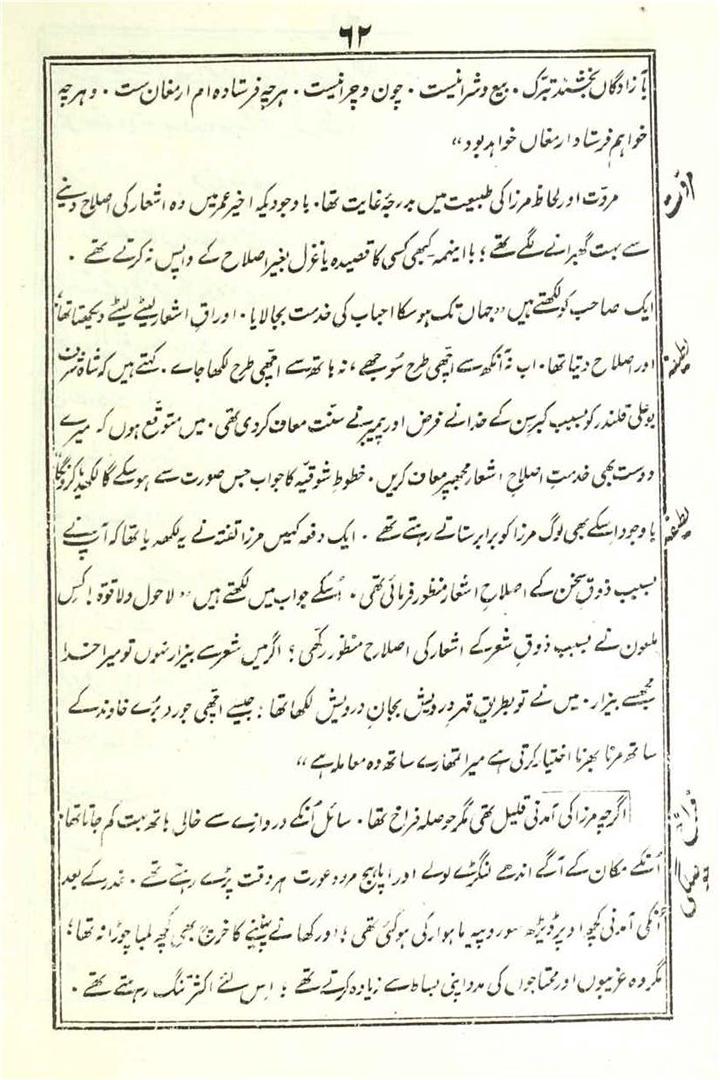 ۶۲
بآزادگاں بخشند تبرّک ۔ بیع و شرا نیست ۔ چون و چرا نیست ۔ ہرچہ فرستادہ ام ارمغان ست ۔ و ہرچہ
خواہم فرستاد ارمغاں خواہد بود“
مروّت
مروّت اور لحاظ مرزا کی طبیعت میں بدرجۂ غایت تھا ۔ باوجودیکہ اخیر عمر میں وہ اشعار کی اصلاح دینے
سے بہت گھبرانے لگے تھے ؛ بااینہمہ کبھی کسی کا قصیدہ یا غزل بغیر اصلاح کے واپس نہ کرتے تھے ۔
ایک صاحب کو لکھتے ہیں ”جہاں تک ہو سکا احباب کی خدمت بجا لایا ۔ اوراقِ اشعار لیٹے لیٹے دیکھتا تھا
لطیفہ
اور اصلاح دیتا تھا ۔ اب نہ آنکھ سے اچھی طرح سُوجھے ، نہ ہاتھ سے اچھی طرح لکھا جاے ۔ کہتے ہیں کہ شاہ شرف
بوعلی قلندر کو بسببِ کبرِ سِن کے خدا نے فرض اور پیمبر نے سنّت معاف کردی تھی ۔ میں متوقّع ہوں کہ میرے
دوست بھی خدمتِ اصلاحِ اشعار مجھپر معاف کریں ۔ خطوطِ شوقیّہ کا جواب جس صورت سے ہو سکے گا لکھدیا کرونگا“
لطیفہ
باوجود اسکے بھی لوگ مرزا کو برابر ستاتے رہتے تھے ۔ ایک دفعہ کہیں مرزا تفتہ نے یہ لکھدیا تھا کہ آپ نے
بسبب ذوقِ سخن کے اصلاحِ اشعار منظور فرمائی تھی ۔ اُسکے جواب میں لکھتے ہیں ”لاحول ولا قوۃ ! کِس
ملعون نے بسبب ذوقِ شعر کے اشعار کی اصلاح منظور رکھی ؟ اگر میں شعر سے بیزار نہوں تو میرا خدا
مجھسے بیزار ۔ میں نے تو بطریقِ قہرِ درویش بجانِ درویش لکھا تھا : جیسے اچھی جورو بُرے خاوند کے
ساتھ مرنا بھرنا اختیار کرتی ہے میرا تمھارے ساتھ وہ معاملہ ہے“
اگرچہ مرزا کی آمدنی قلیل تھی مگر حوصلہ فراخ تھا ۔ سائل اُنکے دروازے سے خالی ہاتھ بہت کم جاتا تھا ۔
اُنکے مکان کے آگے اندھے لنگڑے لولے اور اپاہج مرد و عورت ہر وقت پڑے رہتے تھے ۔ غدر کے بعد
اُنکی آمدنی کچھ اوپر ڈیڑھ سو روپیہ ماہوار کی ہوگئی تھی ؛ اور کھانے پہننے کا خرچ بھی کچھ لمبا چوڑا نہ تھا ؛
مگر وہ غریبوں اور محتاجوں کی مدد اپنی بساط سے زیادہ کرتے تھے ؛ اِس لئے اکثر تنگ رہتے تھے ۔